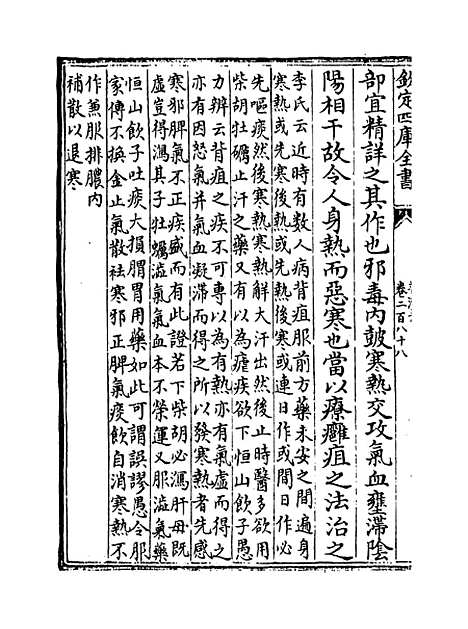 欽定四庫全書
卷二百八十八
部宜精詳之其作也邪毒内皷寒熱交攻氣血壅滯陰
陽相干故令人身熱而惡寒也當以療癰疽之法治之
李氏云近時有数人病背疽服前方藥未安之間遍身
寒熱或先寒後熱或先熱後寒或連日作或間日作必
先嘔痰然後寒熱寒熱解大汗出然後止時醫多欲用
柴胡牡礪止汗之藥又有以為瘧疾欲下恒山飲子愚
力辨云背疽之疾不可專以為有熱亦有氣虛而得之
亦有因怒氣并氣血凝滯而得之所以發寒熱者先感
寒邪脾氣不正疾盛而有此證若下柴胡必瀉肝母既
虛豈得瀉其子牡蠣澁氣氣血本不榮運又服澁氣藥
恒山飲子吐痰大損脾胃用藥如此可謂誤謬愚令服
家傳不换金止氣散袪寒邪正脾氣痰飲自消寒熱不
作兼服排膿内
補散以退寒